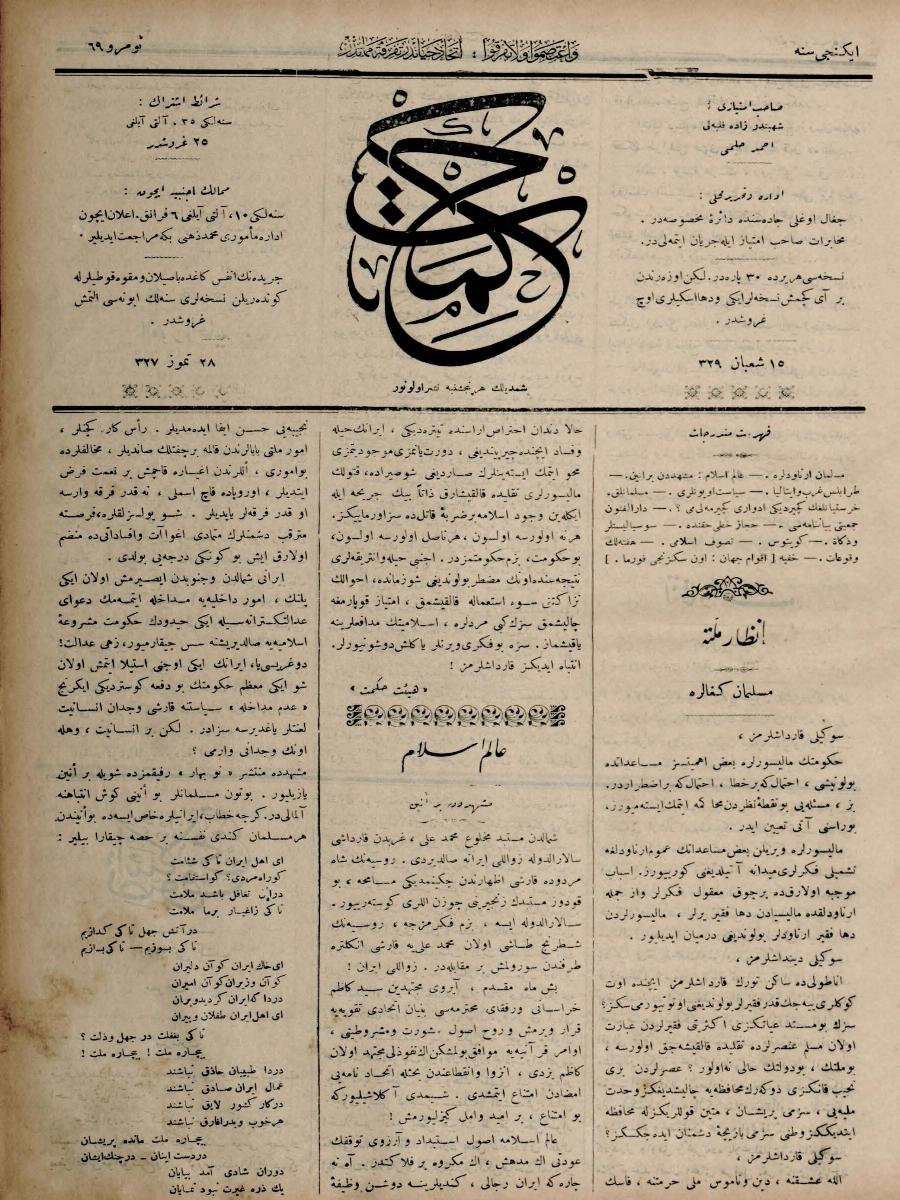 ایکنجی سنه
واعتصموا ولا تفرقوا : اتحاد حیاتدر تفرقه مماتدر
نومرو ٦٩
صاحب امتیازی :
شهبندر زاده فلبه‌لی
احمد حلمی
اداره و تحریر محلی :
جغال اوغلی جاده‌سنده دائرهٔ مخصوصه‌در .
مخابرات صاحب امتیاز ایله جریان ایتمه‌لی‌در.
نسخه‌سی هر یرده ٣٠ پاره‌در. لکن اوزه‌رندن
بر آی کچمش نسخه‌لر ایکی و دها اسکیلری اوچ
غروشدر .
١٥ شعبان ٣٢٩
حکمت
شمدیلك هر پنجشنبه نشر اولونور
شرائط اشتراك :
سنه‌لکی ٣٥ . آلتی آیلغی
٢٥ غروشدر
ممالك اجنبیه ایچون :
سنه‌لکی ١٠، آلتی آیلغی ٦ فرانق. اعلان ایچون
اداره مأموری محمد ذهنی بکه مراجعت ایدیلیر .
جریده‌نك انفس کاغده باصیلان و مقوه قوطیلر له
کوندریلن نسخه‌لری سنه‌لك ابونه‌سی التمش
غروشدر .
٢٨ تموز ٣٢٧
فهرست مندرجات
مسلمان ارناودلره . — عالم اسلام : مشهددن بر انین. —
طرابلس غرب و ایتالیا . — سیاست اویونلری . — مسلمانلق.
خرستیانلغك کچیردیکی ادواری کچیرمه‌لی می ؟ . — دار الفنون
جمعیتی بیاننامه‌سی . — حجاز خطی حقنده . — سوسیالیستلر
وذکاة . — کوینوس . — تصوف اسلامی . — هفته‌لك
وقوعات . — خفیه [ اقوام جهان : اون سکزنجی فورما . ]
انظار ملته
مسلمان کغالره
سوکیلی قارداشلرمز ،
حکومتك مالیسورلره بعض اهمیتسز مساعداتده
بولونیشی ، احتمال که بر خطا ، احتمال که بر اضطراردر.
بز ، مسئله‌یی بو نقطهٔ نظردن محاکمه ایتمك ایسته‌میورز.
بوراسنی آتی تعیین ایدر .
مالیسورلره ویریلن بعض مساعداتك عموم ارناودلغه
تشمیلی فکرلری میدانه آتیلدیغی کوریورز. اسباب
موجبه اولارق ده برچوق معقول فکرلر واز جمله
ارناودلقده مالیسیادن دها فقیر یرلر ، مالیسورلردن
دها فقیر ارناودلر بولوندیغی درمیان ایدیلیور .
سوکیلی دینداشلرمز ،
اناطولی‌ده ساکن تورك قارداشلرمز ایچنده اوت
کوکلری ییه‌جك قدر فقیرلر بولوندیغنی اونوتیورمی سکز؟
سوکیلی قارداشلرمز ،
الله عشقنه ، دین و ناموس ملی حرمتنه ، فاسك
حالا دندان احتراص اراسنده تیتره‌دیکی ، ایرانك حیله
وفساد ایچنده چیرپیندیغی ، دورت یاتمزی موجودیتمزی
محو ایتمك ایسته‌ینلرك صاردیغی شو صیراده، قتولك
مالیسورلری تقلیده قالقیشارق ذاتاً بیك جریحه ایله
ایکله‌ین وجود اسلامه بر ضربهٔ قاتل ده سز اورمایکز.
هر نه اولورسه اولسون ، هر ناصل اولورسه اولسون،
بو حکومت، بزم حکومتمزدر. اجنبی حیله و انتریقه‌لری
نتیجه‌سنده اونك مضطر بولوندیغی شو زمانده، احوالك
نزاکتنی سوء استعماله قالقیشمق ، امتیاز قوپارمغه
چالیشمق سزك کبی مردلره ، اسلامیتك مدافعلرینه
یاقیشماز . سزه بو فکری ویرنلر یا کلش دوشونیورلر.
انتباه ایدیکز قارداشلرمز !
« هیئت حکمت »
عالم اسلام
مشهددن بر انین
شمالدن مستبد مخلوع محمد علی ، غربدن قارداشی
سالار الدوله زواللی ایرانه صالدیردی . روسیه‌نك شاه
مردوده قارشی اظهارندن چکینمدیکی مسامحه ، بو
قودوز مستبدك زنجیرینی چوزن اللری کوسته‌رییور .
سالار الدوله ایسه ، بزم فکرمزجه ، روسیه‌نك
شطرنج طاشی اولان محمد علی‌یه قارشی انکلتره
طرفندن سورولمش بر مقابله‌در . زواللی ایران !
بش ماه مقدم ، آبروی مجتهدین سید کاظم
خراسانی و رفقای محترمه‌سی بنیان اتحادی تقویه‌یه
قرار ویرمش و روح اصول شورت و مشروطیتی ،
اوامر قرآنیه‌یه موافق بولمشکن اك نفوذلی مجتهد اولان
کاظم یزدی ، انزوا و انقطاعندن بحثله اتحاد نامه‌یی
امضادن امتناع ایتمشدی . شیمدی آکلاشیلیورکه
بو امتناع ، بر امید و امل کیزلیورمش !
عالم اسلامه اصول استبداد و آرزوی توقفك
عودتی اك مدهش ، اك مکروه بر فلاکتدر . آه نه
چاره‌که ایران رجالی ، کندیلرینه دوشن وظیفهٔ
نجیبه‌یی حسن ایفا ایده‌مدیلر . رأس کاره کچنلر ،
امور ملتی بابالرندن قالمه برچفتلك صاندیلر ، مخالفلرده
بو اموری ، اللرندن اغیاره قاچمش بر نعمت فرض
ایتدیلر ، اوروپاده قاچ اسملی ، نه قدر فرقه وارسه
او قدر فرقه‌لر یاپدیلر . شو یولسزلقلره، فرصته
مترقب دشمنلرك متمادی اغواآت و افساداتی ده منضم
اولارق ایش بو کونکی درجه‌یی بولدی .
ایرانی شمالدن و جنوبدن ایصیرمش اولان ایکی
یلانك ، امور داخلیه‌یه مداخله ایتمه‌مك دعوای
عدالتکارانه‌سیله ایکی حیدودك حکومت مشروعهٔ
اسلامیه‌یه صالدیریشنه سس چیقارمیور، زهی عدالت!
دوغریسی یا، ایرانك ایکی اوجنی استیلا ایتمش اولان
شو ایکی معظم حکومتك بو دفعه کوستردیکی ایکرنج
« عدم مداخله » سیاسته قارشی وجدان انسانیت
لعنتلر یاغدیرسه سزادر . لکن بر انسانیت ، و هله
اونك وجدانی وارمی ؟
مشهدده منتشر « نو بهار » رفیقمزده شویله بر انین
یازیلیور . بوتون مسلمانلر بو انینی کوش انتباهنه
آلمالی‌در. کرچه خطاب، ایرانیلره خاص ایسه‌ده بو انیندن
هر مسلمان کندی نفسنه بر حصه چیقارا بیلیر :
ای اهل ایران تاکی شئامت
کو راه مردی؟ کو استقامت ؟
در این تغافل باشد ملامت
تاکی ز اغیار بر ما ملامت
در آتش جهل تاکی گدازیم
تاکی بسوزیم — تاکی بسازیم
ای خاك ایران کو آن دلیران
کو آن وزیران کو آن امیران
دردا که ایران کردید ویران
ای اهل ایران طفلان و پیران
تاکی بغفلت در جهل و ذلت ؟
بیچاره ملت ! بیچاره ملت !
دردا طبیبان حاذق نباشند
عمال ایران صادق نباشند
در کار کشور لایق نباشند
هر خوب و بد را فارق نباشند
بیچاره ملت مانده پریشان
در دست اینان — در چنك ایشان
دوران شادی آمد بپایان
یك ذره غیرت نبود نمایان